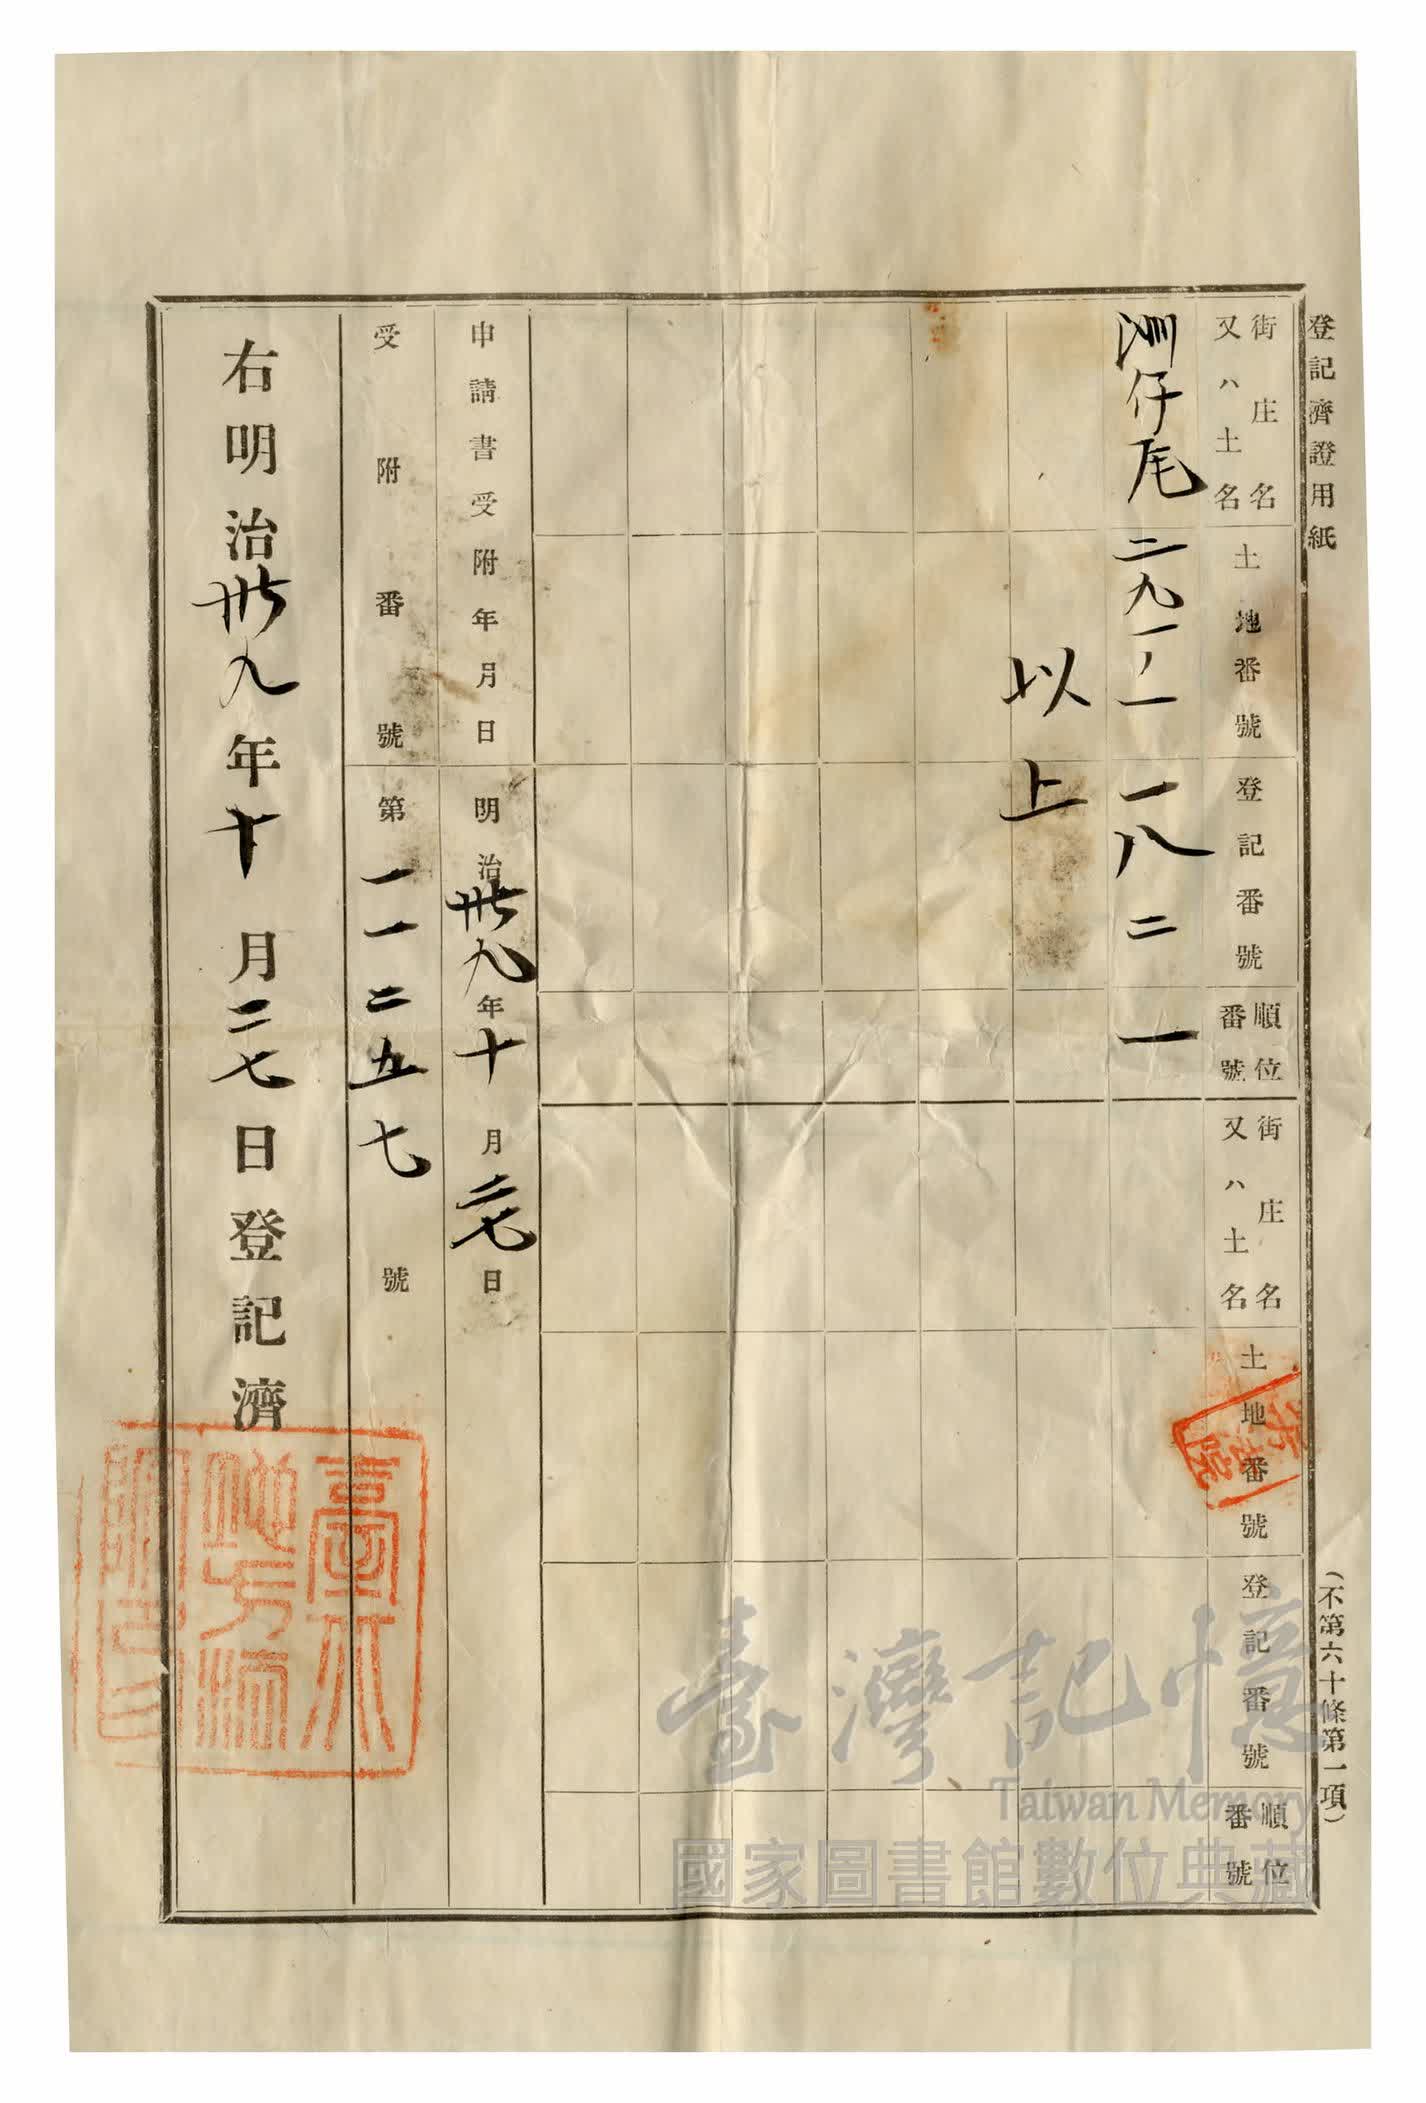 登記濟證用紙
(不第六十條第一項)
街庄名
又ハ土名
土地番號
登記番號
順位
番號
街庄名
又ハ土名
土地番號
登記番號
順位
番號
洲仔尾 二九一ノ一 一八二 一
以上
申請書受附年月日 明治卅九年十月二七日
受附番號 第一一二五七號
右明治卅九年十月二七日登記濟
臺北
地方
臺灣記憶
Taiwan Memory
國家圖書館數位典藏